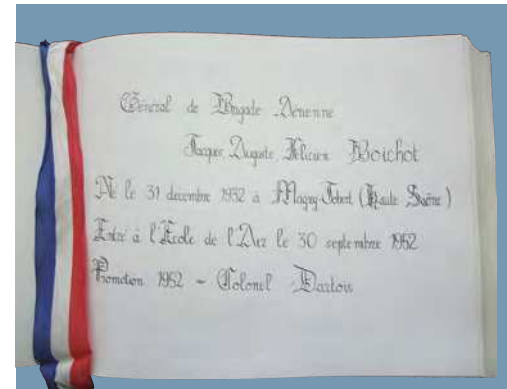 Général de Brigade Aérienne
Jacques, Auguste, Félicien Boichot
Né le 31 décembre 1932 à Magny-Jobert (Haute Saône)
Entré à l'École de l'Air le 30 septembre 1952
Promotion 1952 - Colonel Dartois